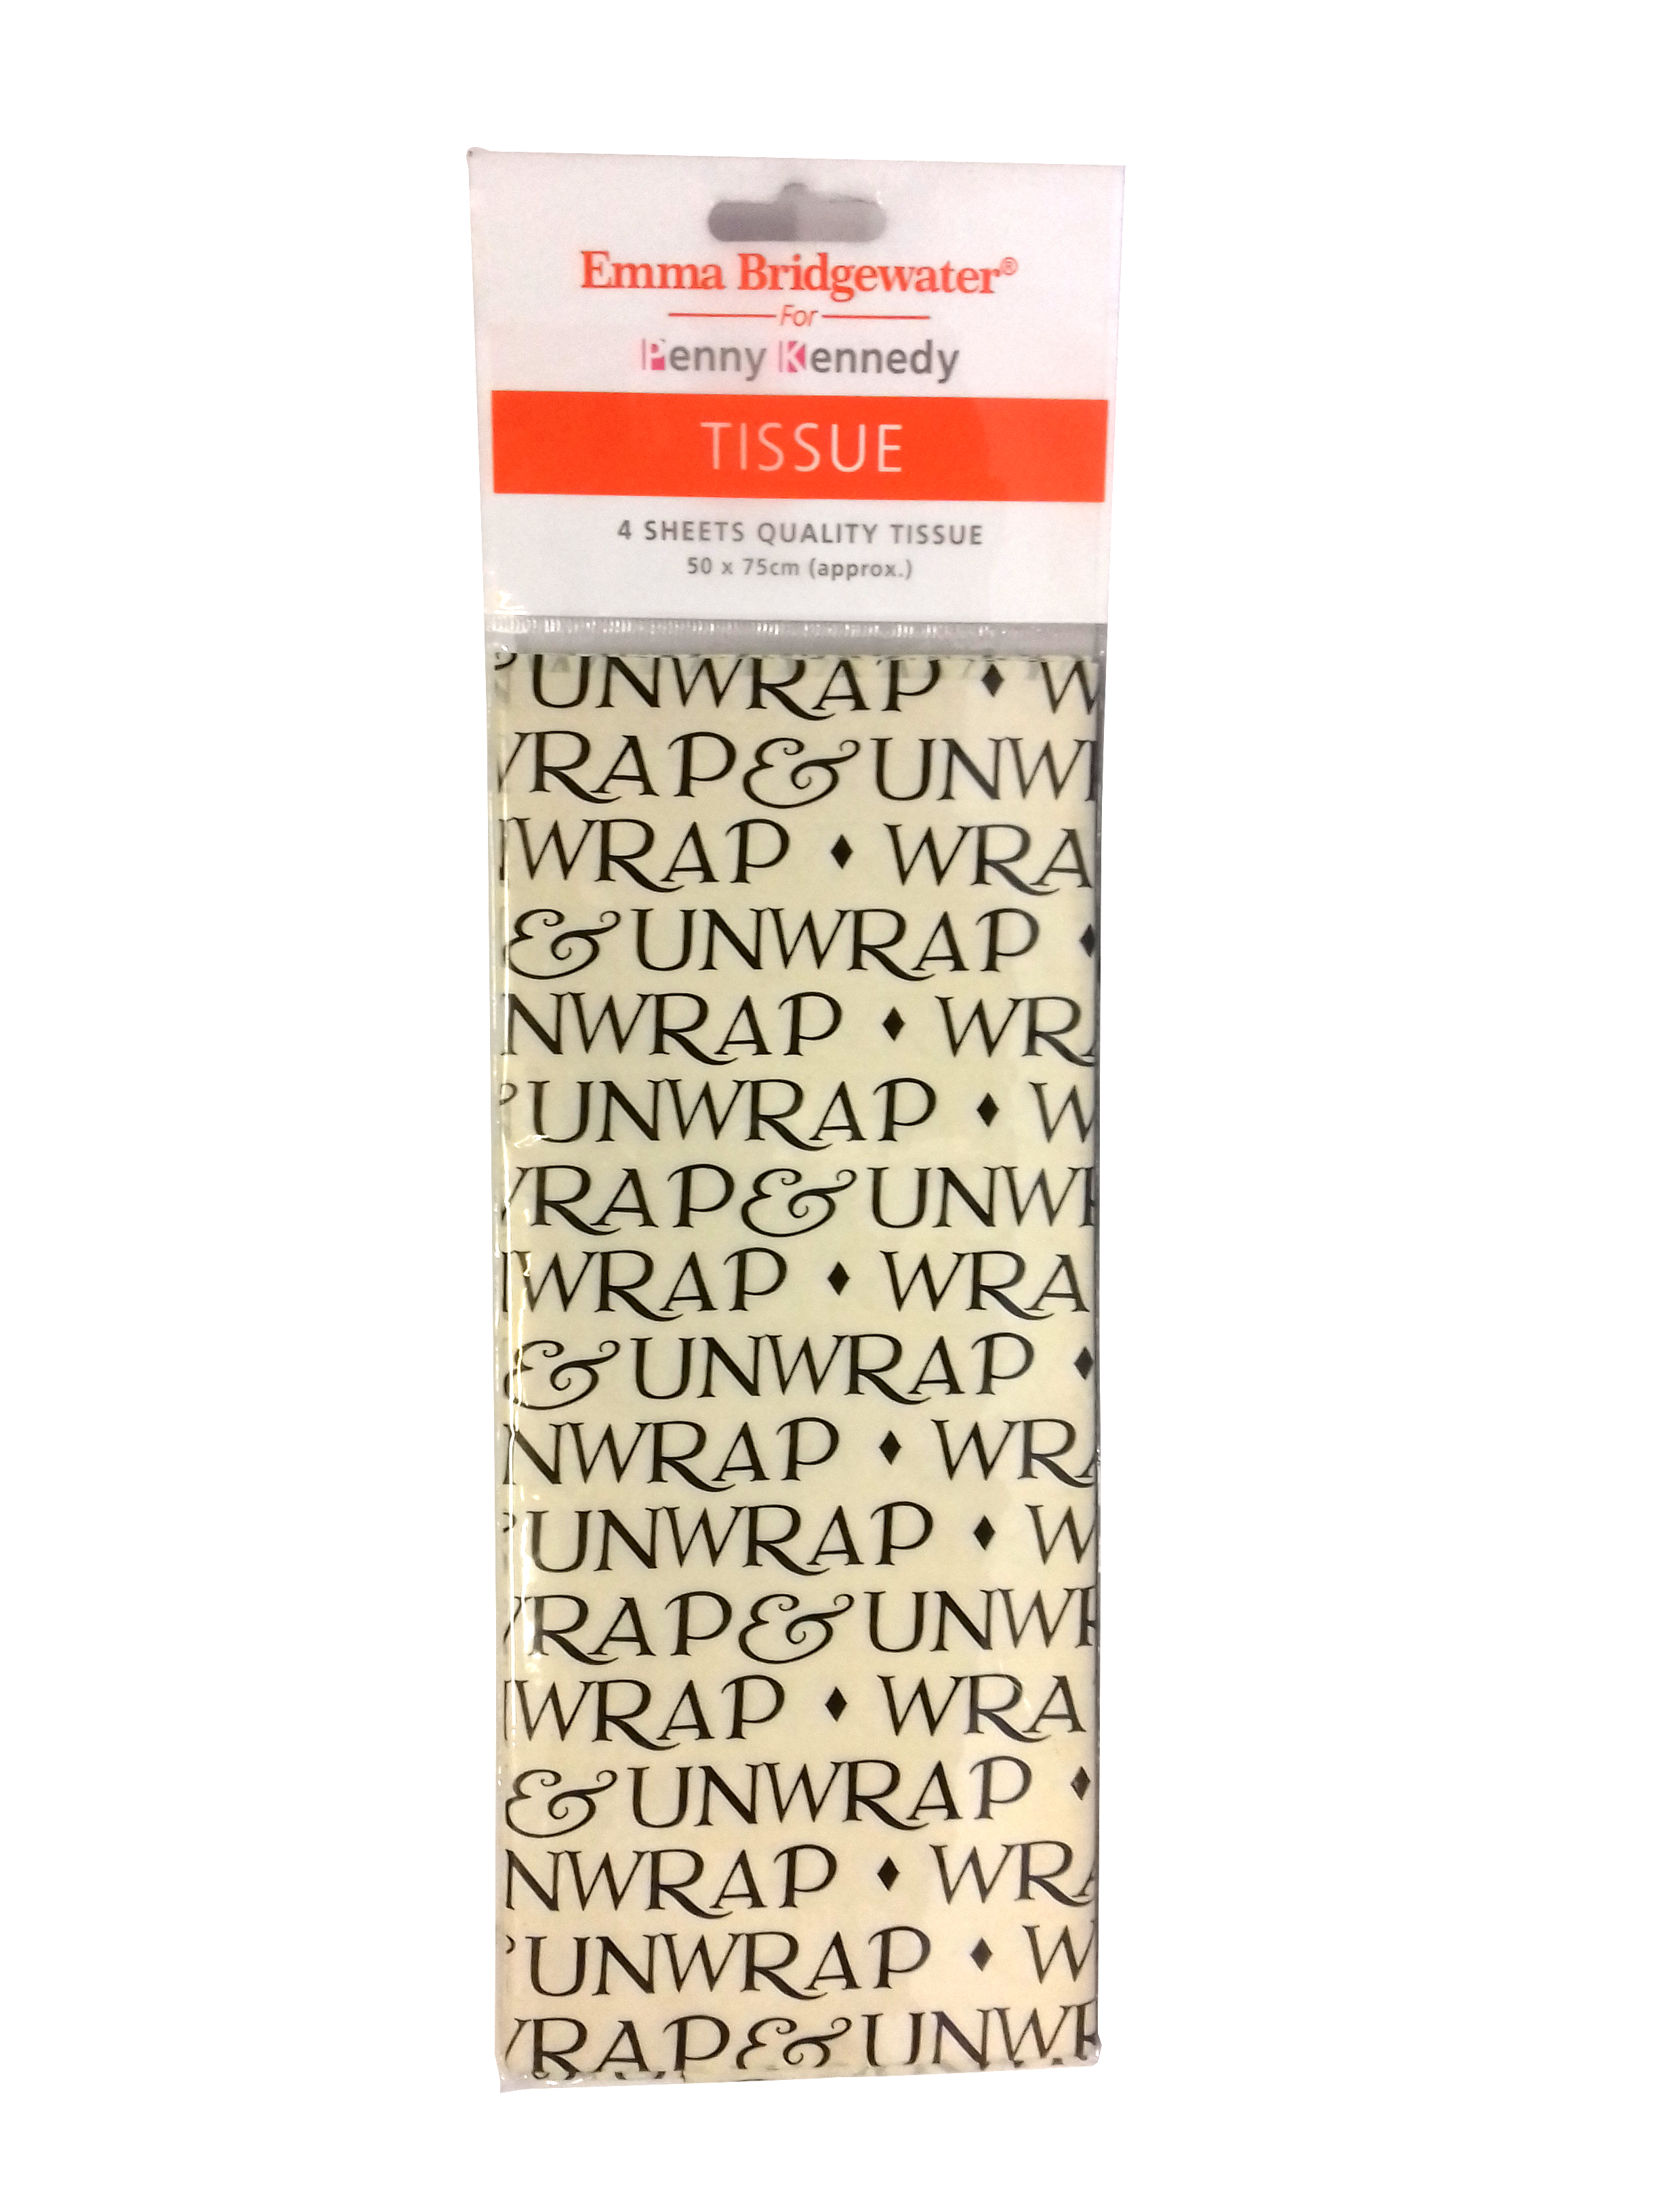 Emma Bridgewater®
For
Penny Kennedy
TISSUE
4 SHEETS QUALITY TISSUE
50 x 75cm (approx.)
UNWRAP ♦ W
RAP & UNW
WRAP ♦ WRA
& UNWRAP ♦
NWRAP ♦ WR
UNWRAP ♦ W
RAP & UNW
WRAP ♦ WRA
& UNWRAP ♦
NWRAP ♦ WR
UNWRAP ♦ W
RAP & UNW
WRAP ♦ WRA
& UNWRAP ♦
NWRAP ♦ WR
UNWRAP ♦ W
RAP & UNW